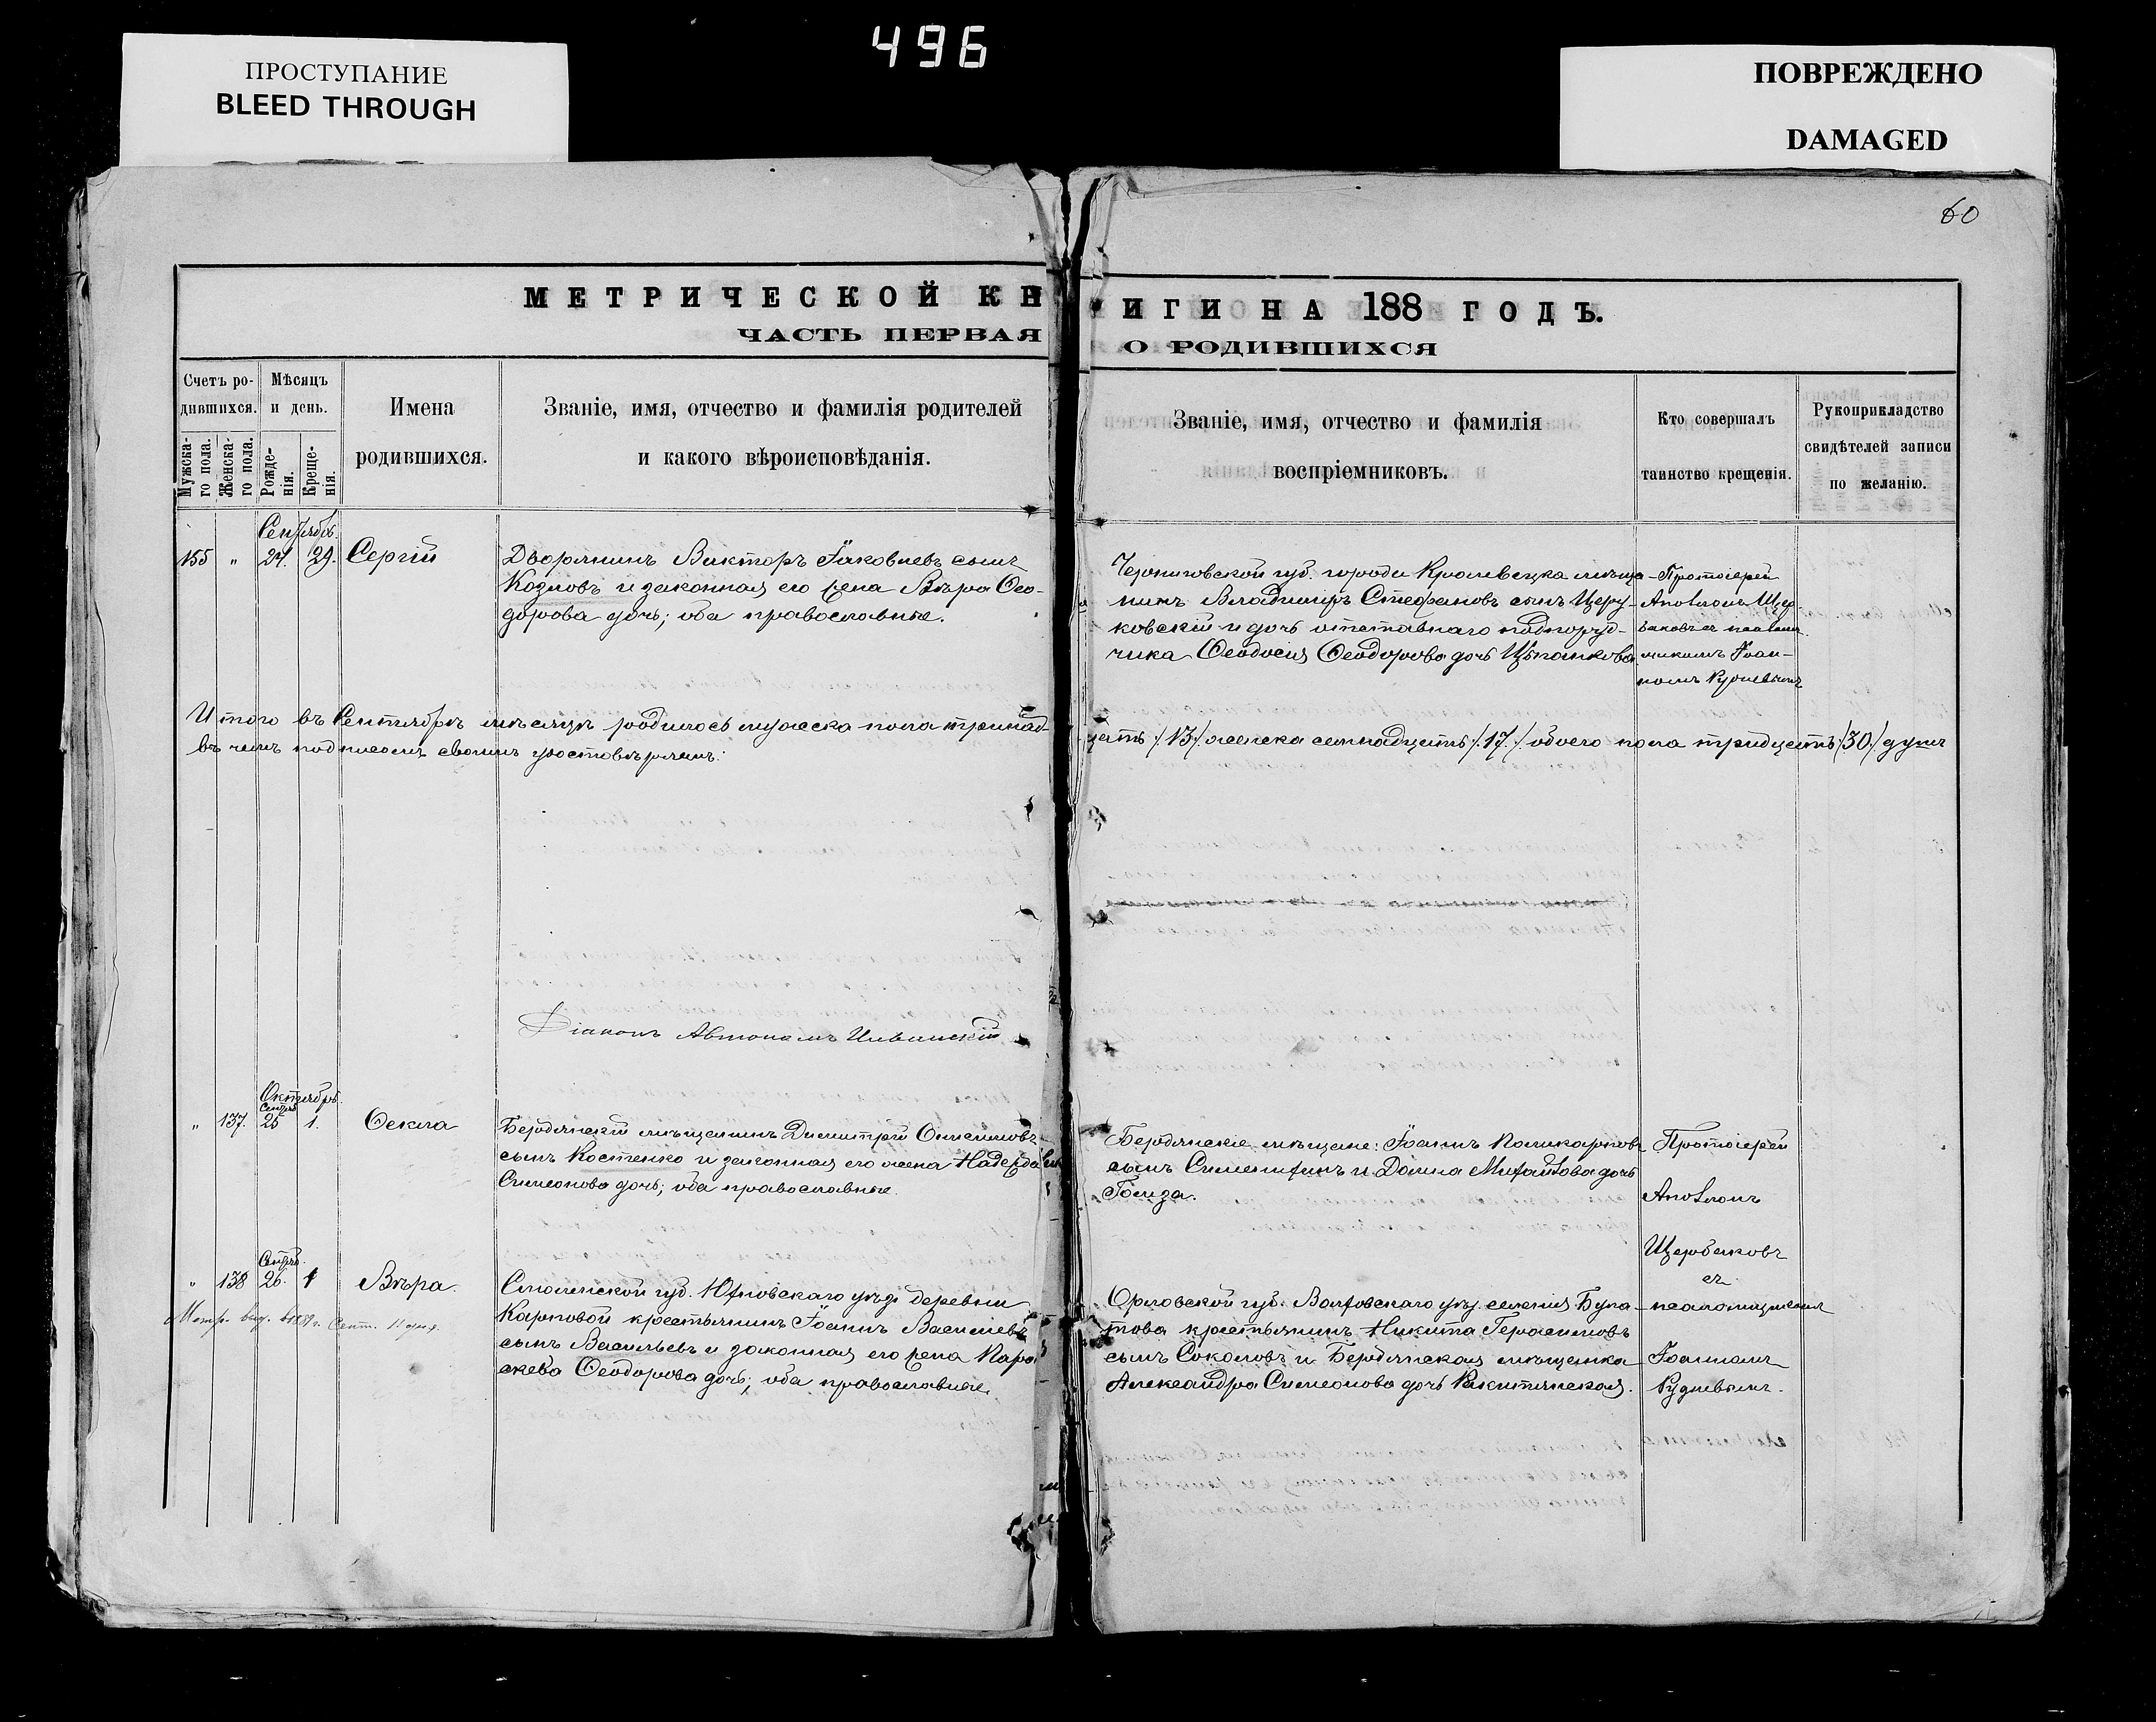 496
ПРОСТУПАНИЕ
BLEED THROUGH
ПОВРЕЖДЕНО
DAMAGED
60
МЕТРИЧЕСКОЙ КН
ЧАСТЬ ПЕРВАЯ
ИГИ НА 188 ГОДЪ.
О РОДИВШИХСЯ
Счетъ ро-
дившихся.
Мужска-
го пола.
Женска-
го пола.
Мѣсяцъ
и день.
Рожде-
нія.
Креще-
нія.
Имена
родившихся.
Званіе, имя, отчество и фамилія родителей
и какого вѣроисповѣданія.
Званіе, имя, отчество и фамилія
воспріемниковъ.
Кто совершалъ
таинство крещенія.
Рукоприкладство
свидѣтелей записи
по желанію.
Сентябрь
155 " 27. 29. Сергій
Дворянинъ Викторъ Іаковлевъ сынъ
Козловъ и законная его жена Вѣра Ѳео-
дорова дочь; оба православные.
Черниговской губ. города Кролевецка мѣща-
нинъ Владиміръ Стефановъ сынъ
ковскій и дочь отставнаго подпору-
чика Ѳеодосія Ѳеодорова дочь
Протоіерей
Аполлонъ Щер-
баковъ съ псалом-
щикомъ Іоан-
номъ Рудневымъ
Итого въ Сентябрѣ мѣсяцѣ родилось мужеска пола тринад-
цать /13/ женска семнадцать /17/ обоего пола тридцать /30/ душъ
въ чемъ подписомъ своимъ удостовѣряемъ:
Діаконъ Автономъ
Октябрь.
Сентяб.
" 137. 25 1. Ѳекла
Бердянскій мѣщанинъ Димитрій Онисимовъ
сынъ Костенко и законная его жена Надежда
Симеонова дочь; оба православные.
Бердянскіе мѣщане: Іоаннъ Поликарповъ
сынъ и Домна Михайлова дочь
Голуза.
Протоіерей
Аполлонъ
Щербаковъ
съ
псаломщикомъ
Іоанномъ
Рудневымъ.
Сентяб.
" 138 26. 1 Вѣра.
Метр. выд. Сент. 11 дня.
Смоленской губ. Юхновскаго уѣзд. деревни
Карповой крестьянинъ Іоаннъ Васильевъ
сынъ Васильевъ и законная его жена Пара-
скева Ѳеодорова дочь; оба православные.
Орловской губ. Болховскаго уѣз. селенія Була-
това крестьянинъ Никита Герасимовъ
сынъ Соколовъ и Бердянская мѣщанка
Александра Симеонова дочь Ракитянская.